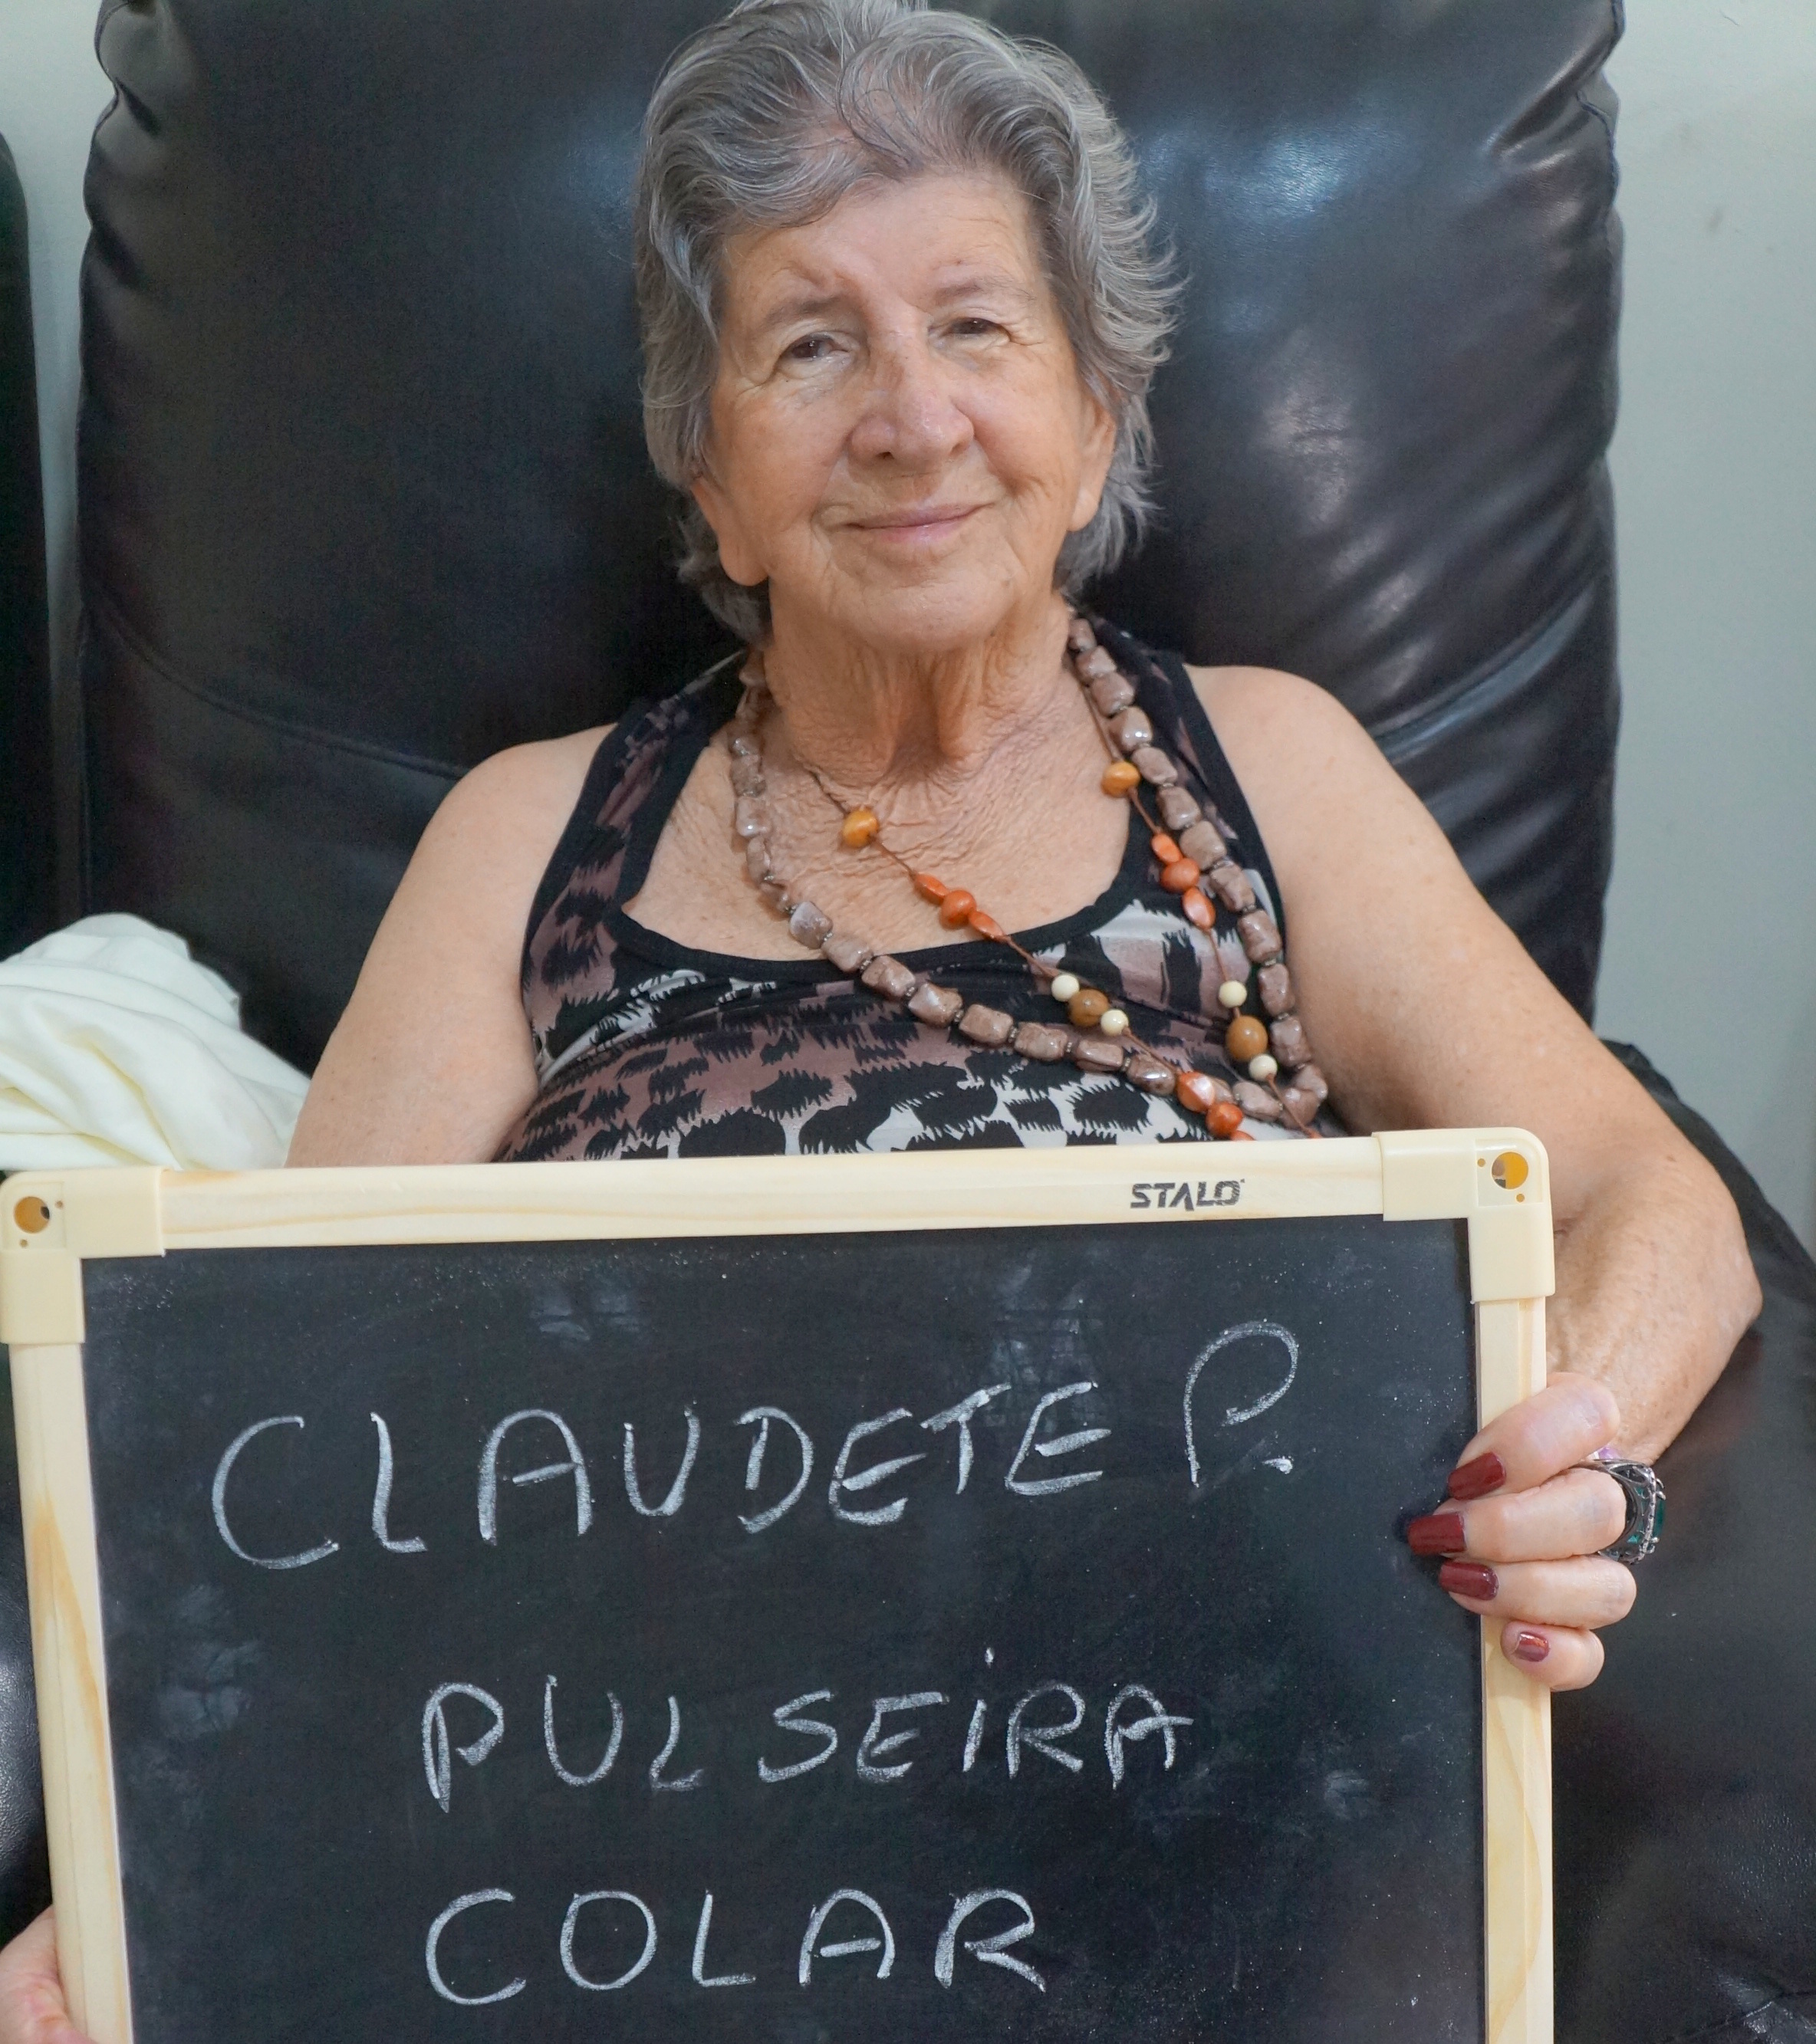 STALO
CLAUDETE P.
PULSEIRA
COLAR